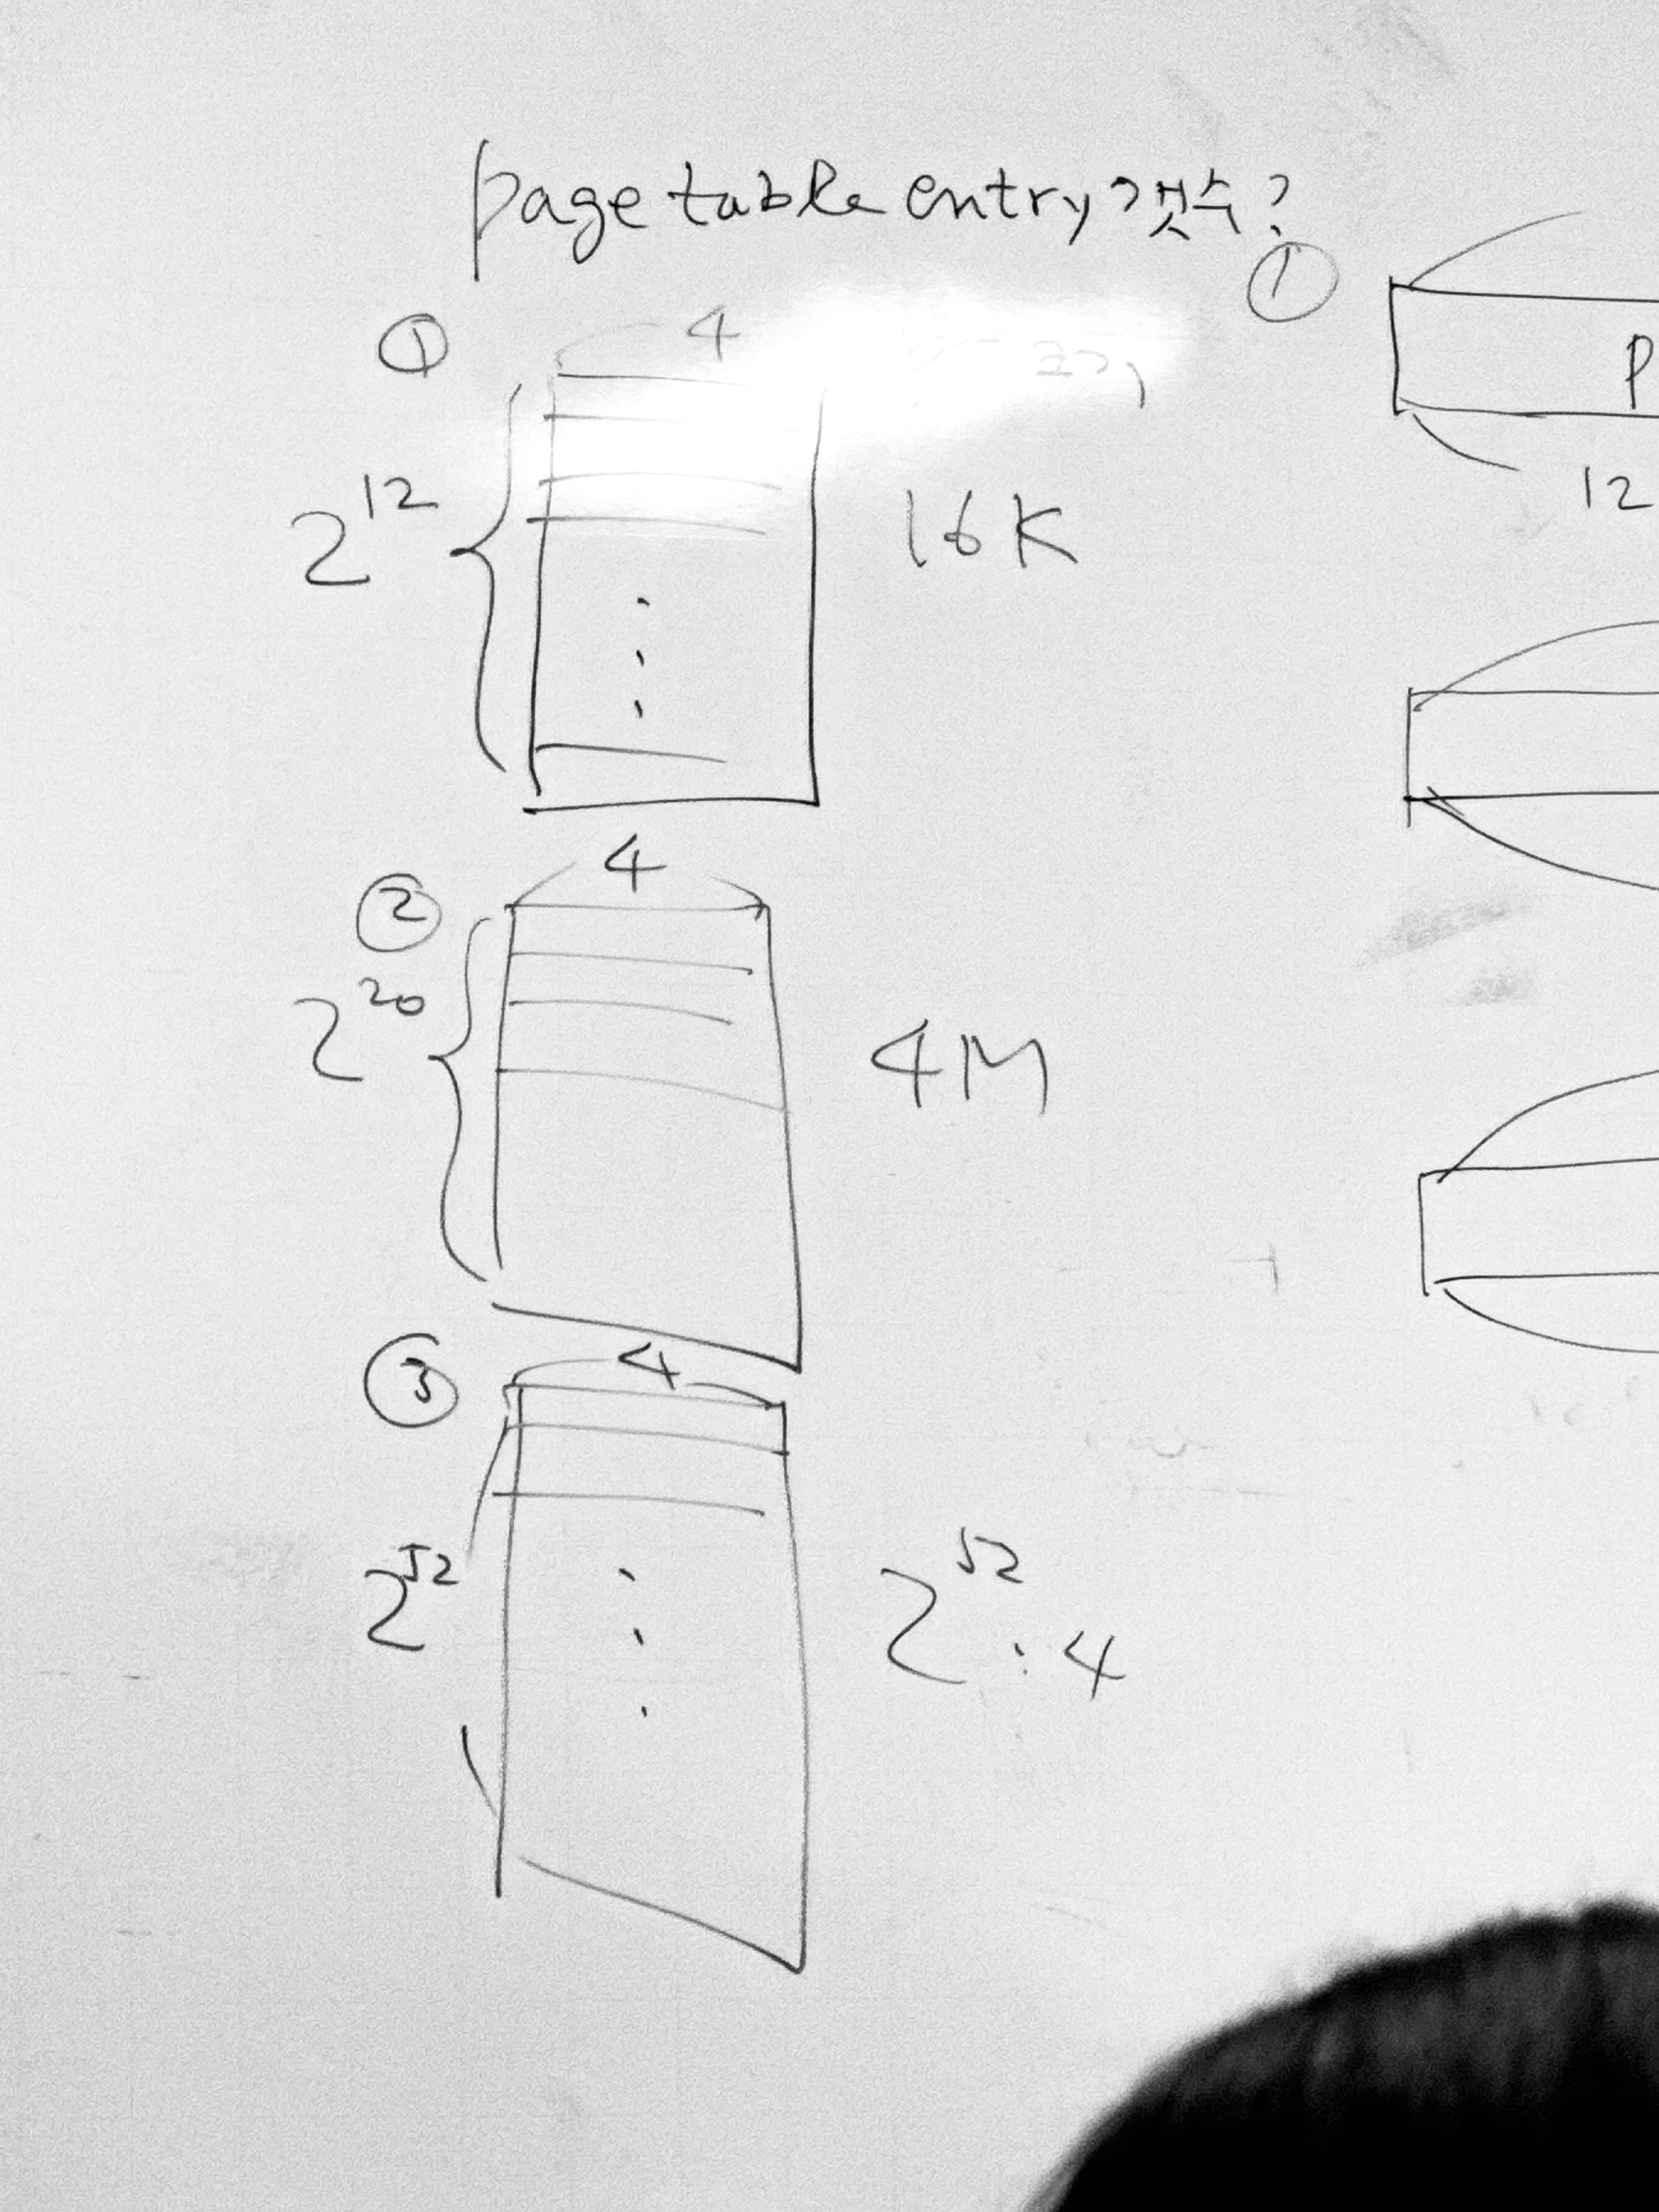 page table entry 갯수?
① 4
2^12 16K
② 4
2^20 4M
③ 4
2^52 2^52 · 4
①
P
12